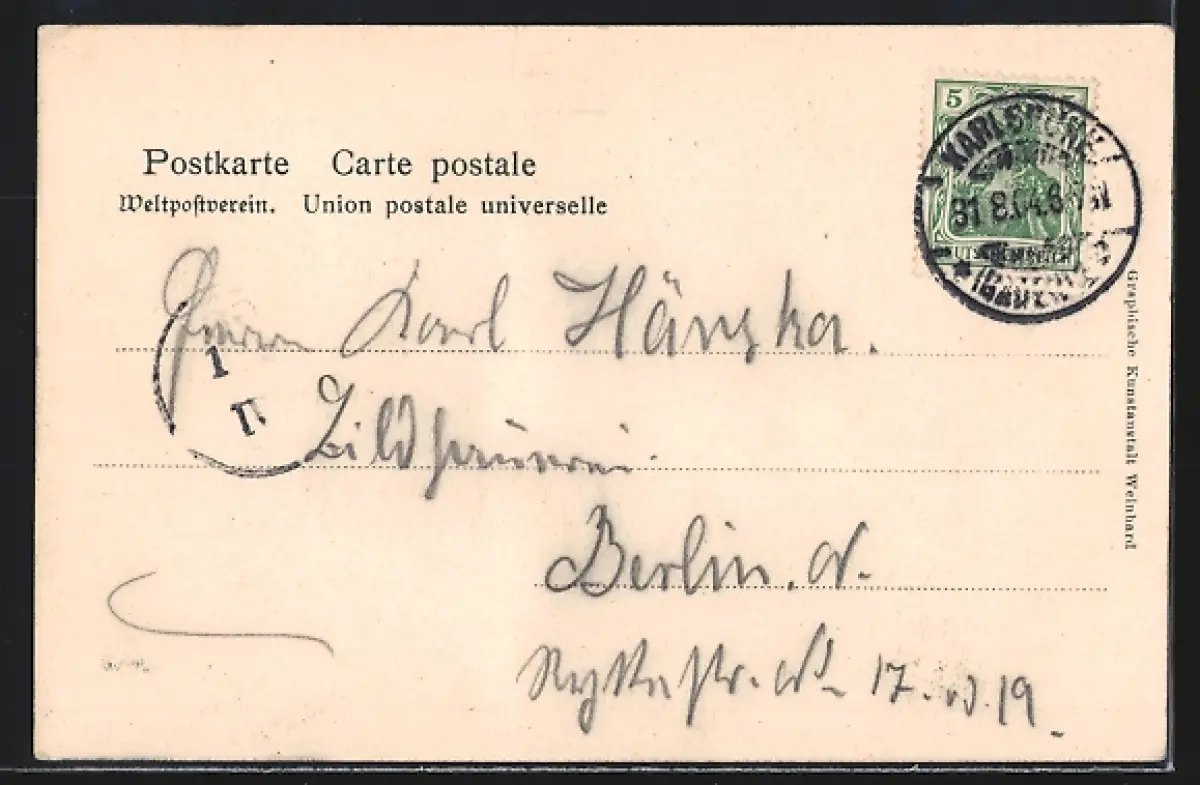 Postkarte Carte postale
Weltpostverein. Union postale universelle
5
KARLSRUHE
31 8.04.6
(BADEN)
Herrn Karl
1
Π
Berlin. N.
str. N° 17. 19
Graphische Kunstanstalt Weinhard